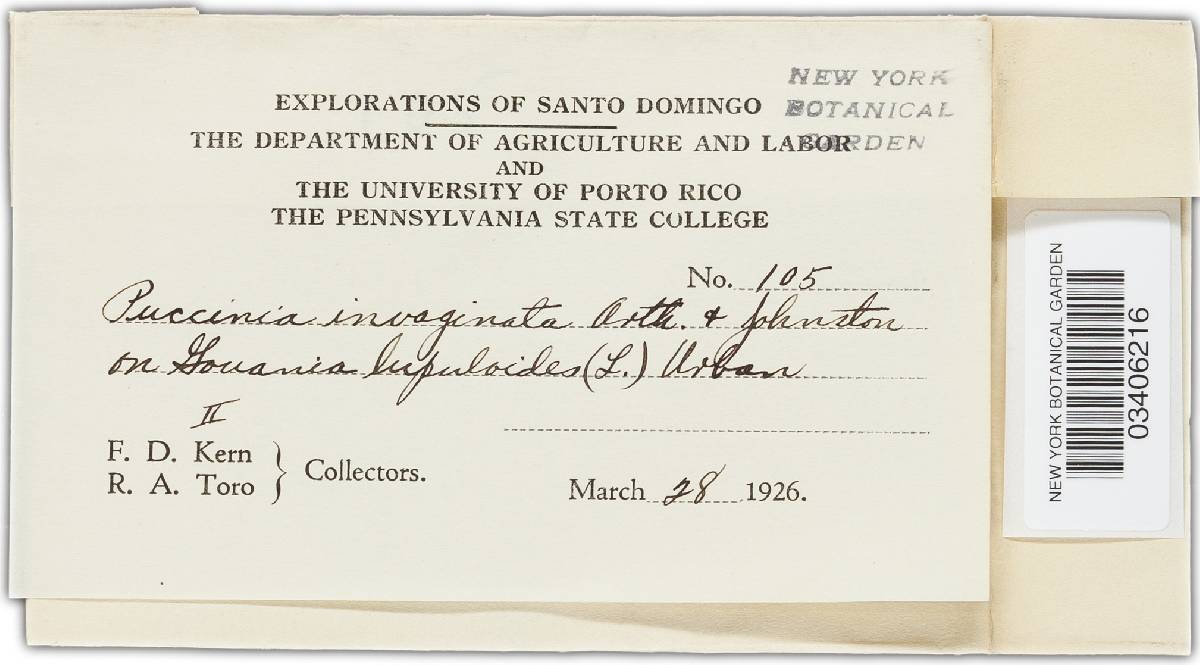 NEW YORK
BOTANICAL
GARDEN
EXPLORATIONS OF SANTO DOMINGO
THE DEPARTMENT OF AGRICULTURE AND LABOR
AND
THE UNIVERSITY OF PORTO RICO
THE PENNSYLVANIA STATE COLLEGE
No. 105
Puccinia invaginata Arth. & Johnston
on Gouania lupuloides (L.) Urban
II
F. D. Kern
R. A. Toro } Collectors.
March 28 1926.
NEW YORK BOTANICAL GARDEN
03406216